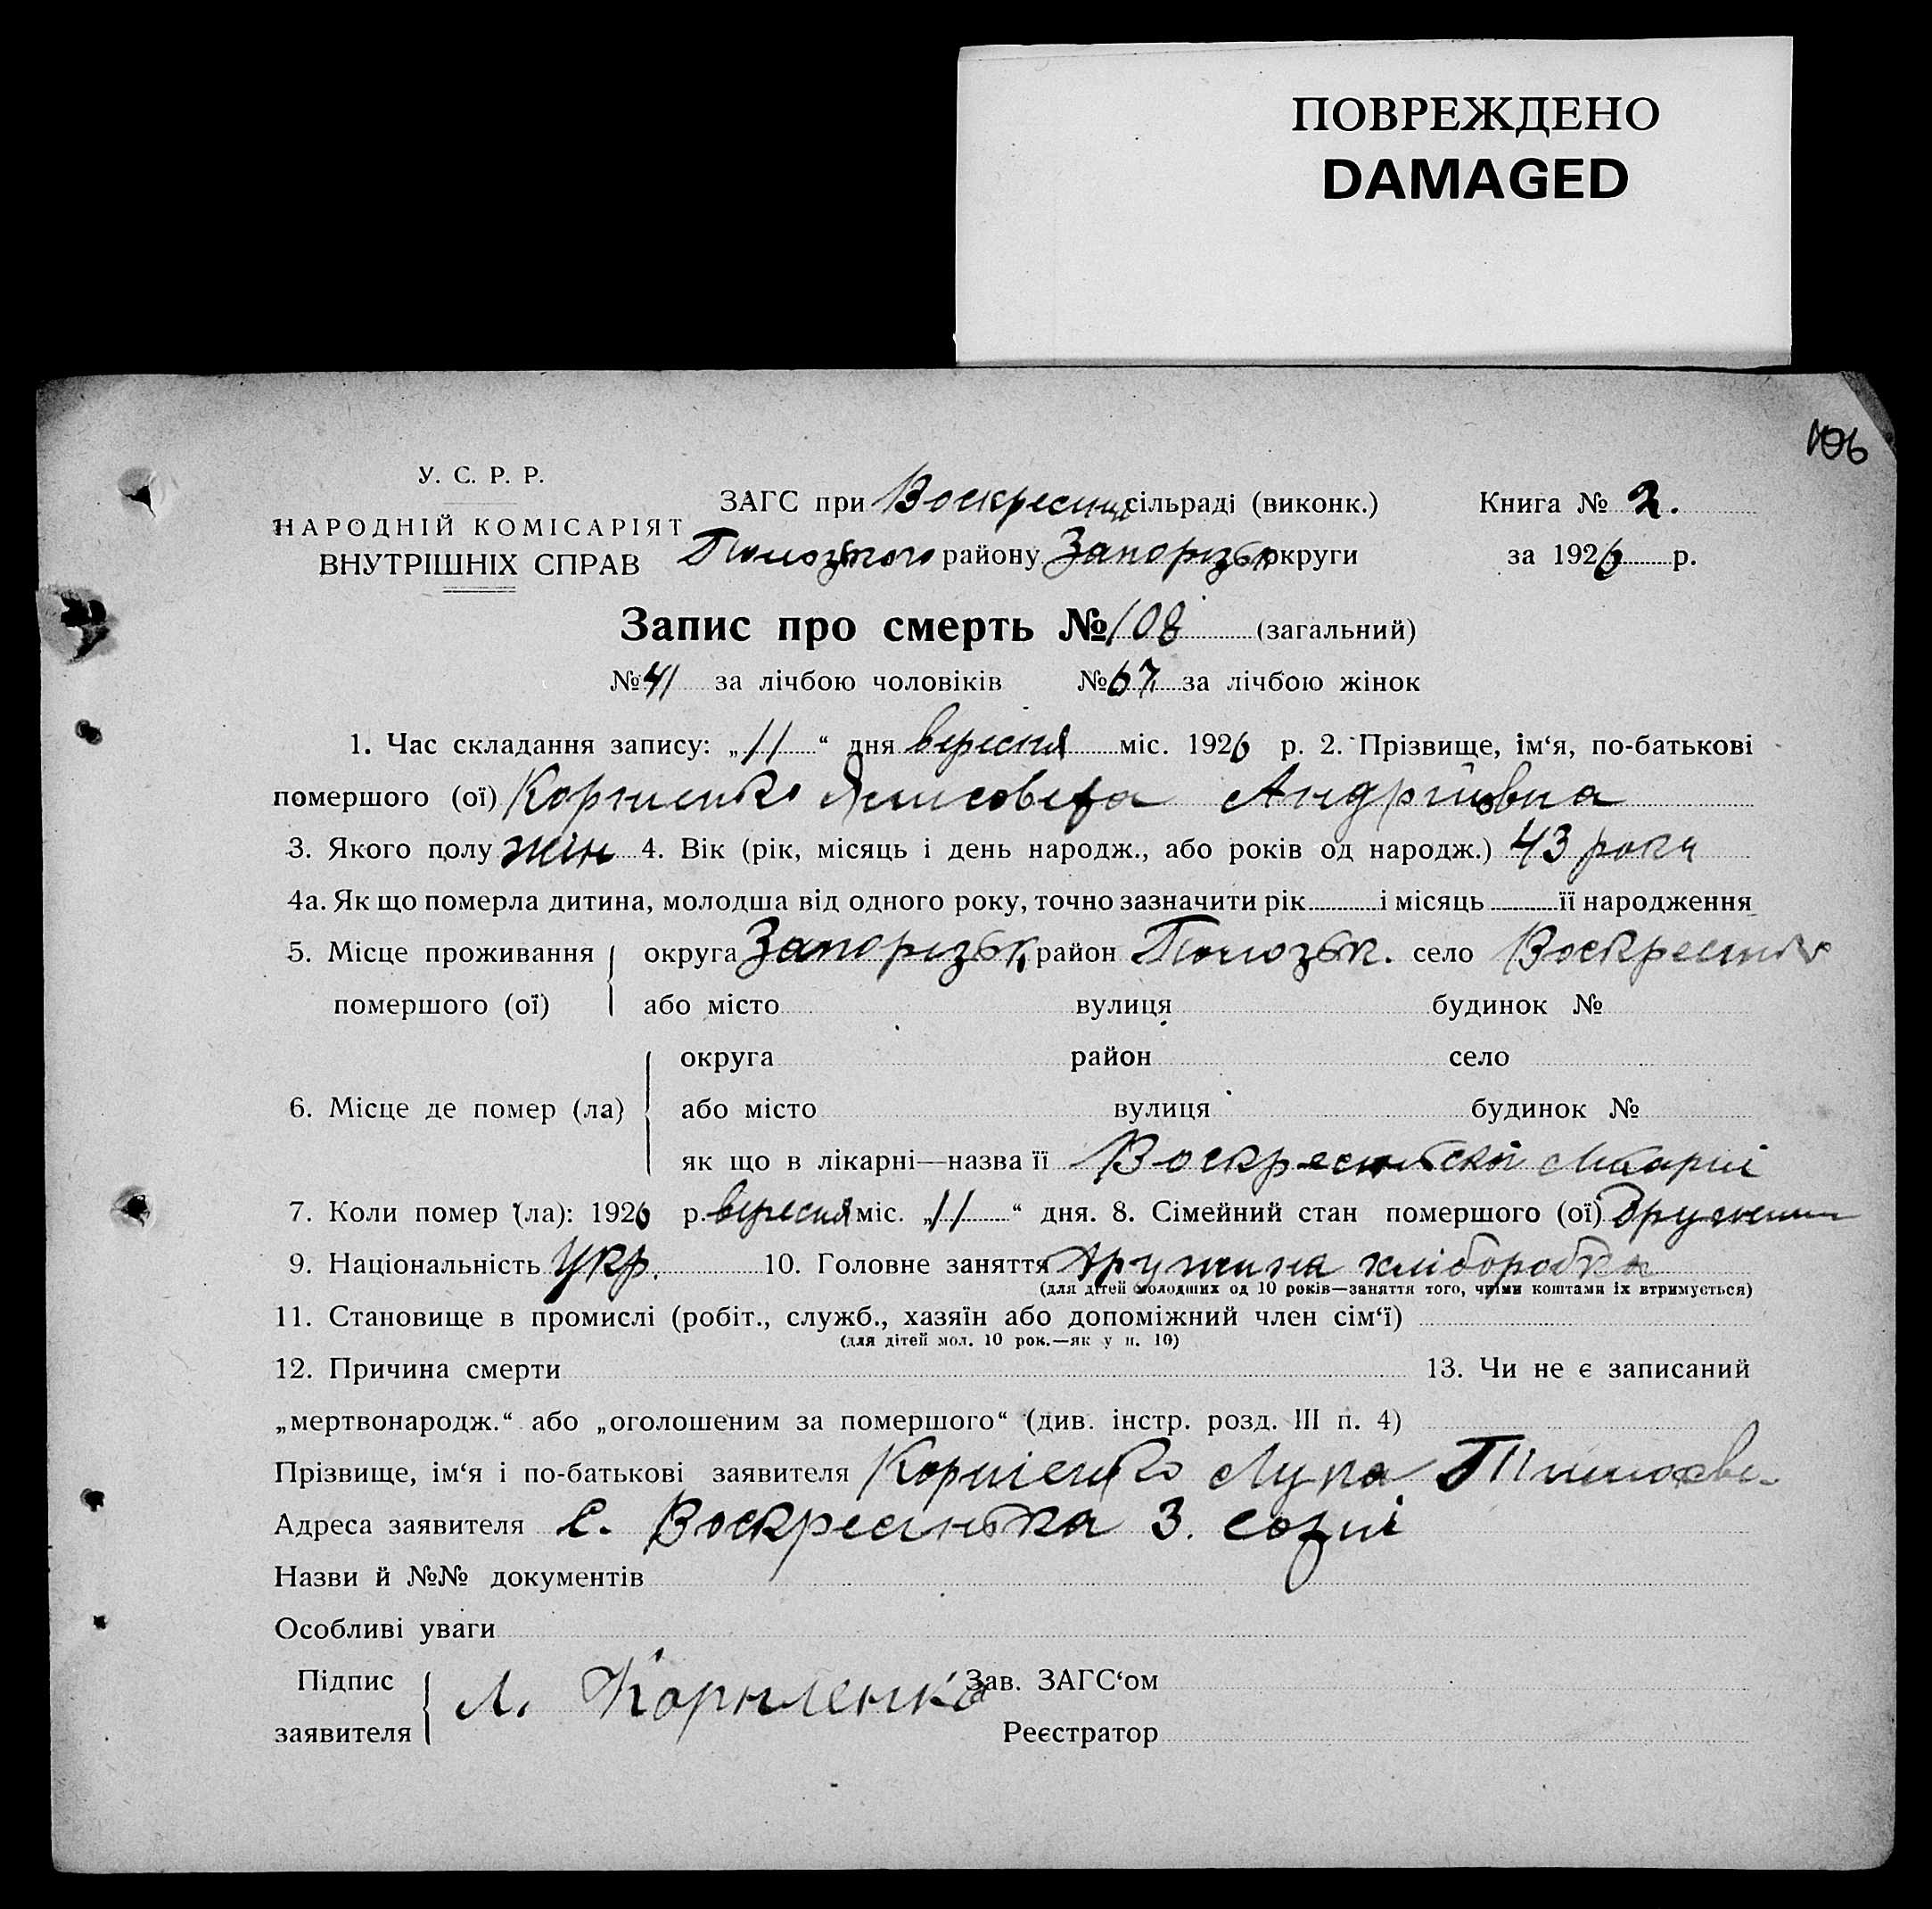 ПОВРЕЖДЕНО
DAMAGED
106
У. С. Р. Р.
НАРОДНІЙ КОМІСАРІЯТ
ВНУТРІШНІХ СПРАВ
ЗАГС при Воскресен. сільраді (виконк.) Книга № 2.
району Запорізьк округи за 1926 р.
Запис про смерть № 108 (загальний)
№ 41 за лічбою чоловіків № 67 за лічбою жінок
1. Час складання запису: „11“ дня вересня міс. 1926 р. 2. Прізвище, ім‘я, по-батькові
помершого (ої) Корнієнко Андріівна
3. Якого полу жін 4. Вік (рік, місяць і день народж., або років од народж.) 43 роки
4а. Як що померла дитина, молодша від одного року, точно зазначити рік і місяць її народження
5. Місце проживання округа Запорізьк, район Пологзьк. село
помершого (ої) або місто вулиця будинок №
округа район село
6. Місце де помер (ла) або місто вулиця будинок №
як що в лікарні—назва її
7. Коли помер (ла): 1926 р. вересня міс. „11“ дня. 8. Сімейний стан помершого (ої)
9. Національність Укр. 10. Головне заняття дружина хлібороба
(для дітей молодших од 10 років—заняття того, чиїми коштами їх втримується)
11. Становище в промислі (робіт., служб., хазяїн або допоміжний член сім‘ї)
(для дітей мол. 10 рок.—як у п. 10)
12. Причина смерти 13. Чи не є записаний
„мертвонародж.“ або „оголошеним за помершого“ (див. інстр. розд. III п. 4)
Прізвище, ім‘я і по-батькові заявителя Корнієнко Лука
Адреса заявителя с. Воскресенька 3. сотні
Назви й №№ документів
Особливі уваги
Підпис
заявителя
Л. Корнленко
Зав. ЗАГС‘ом
Реєстратор